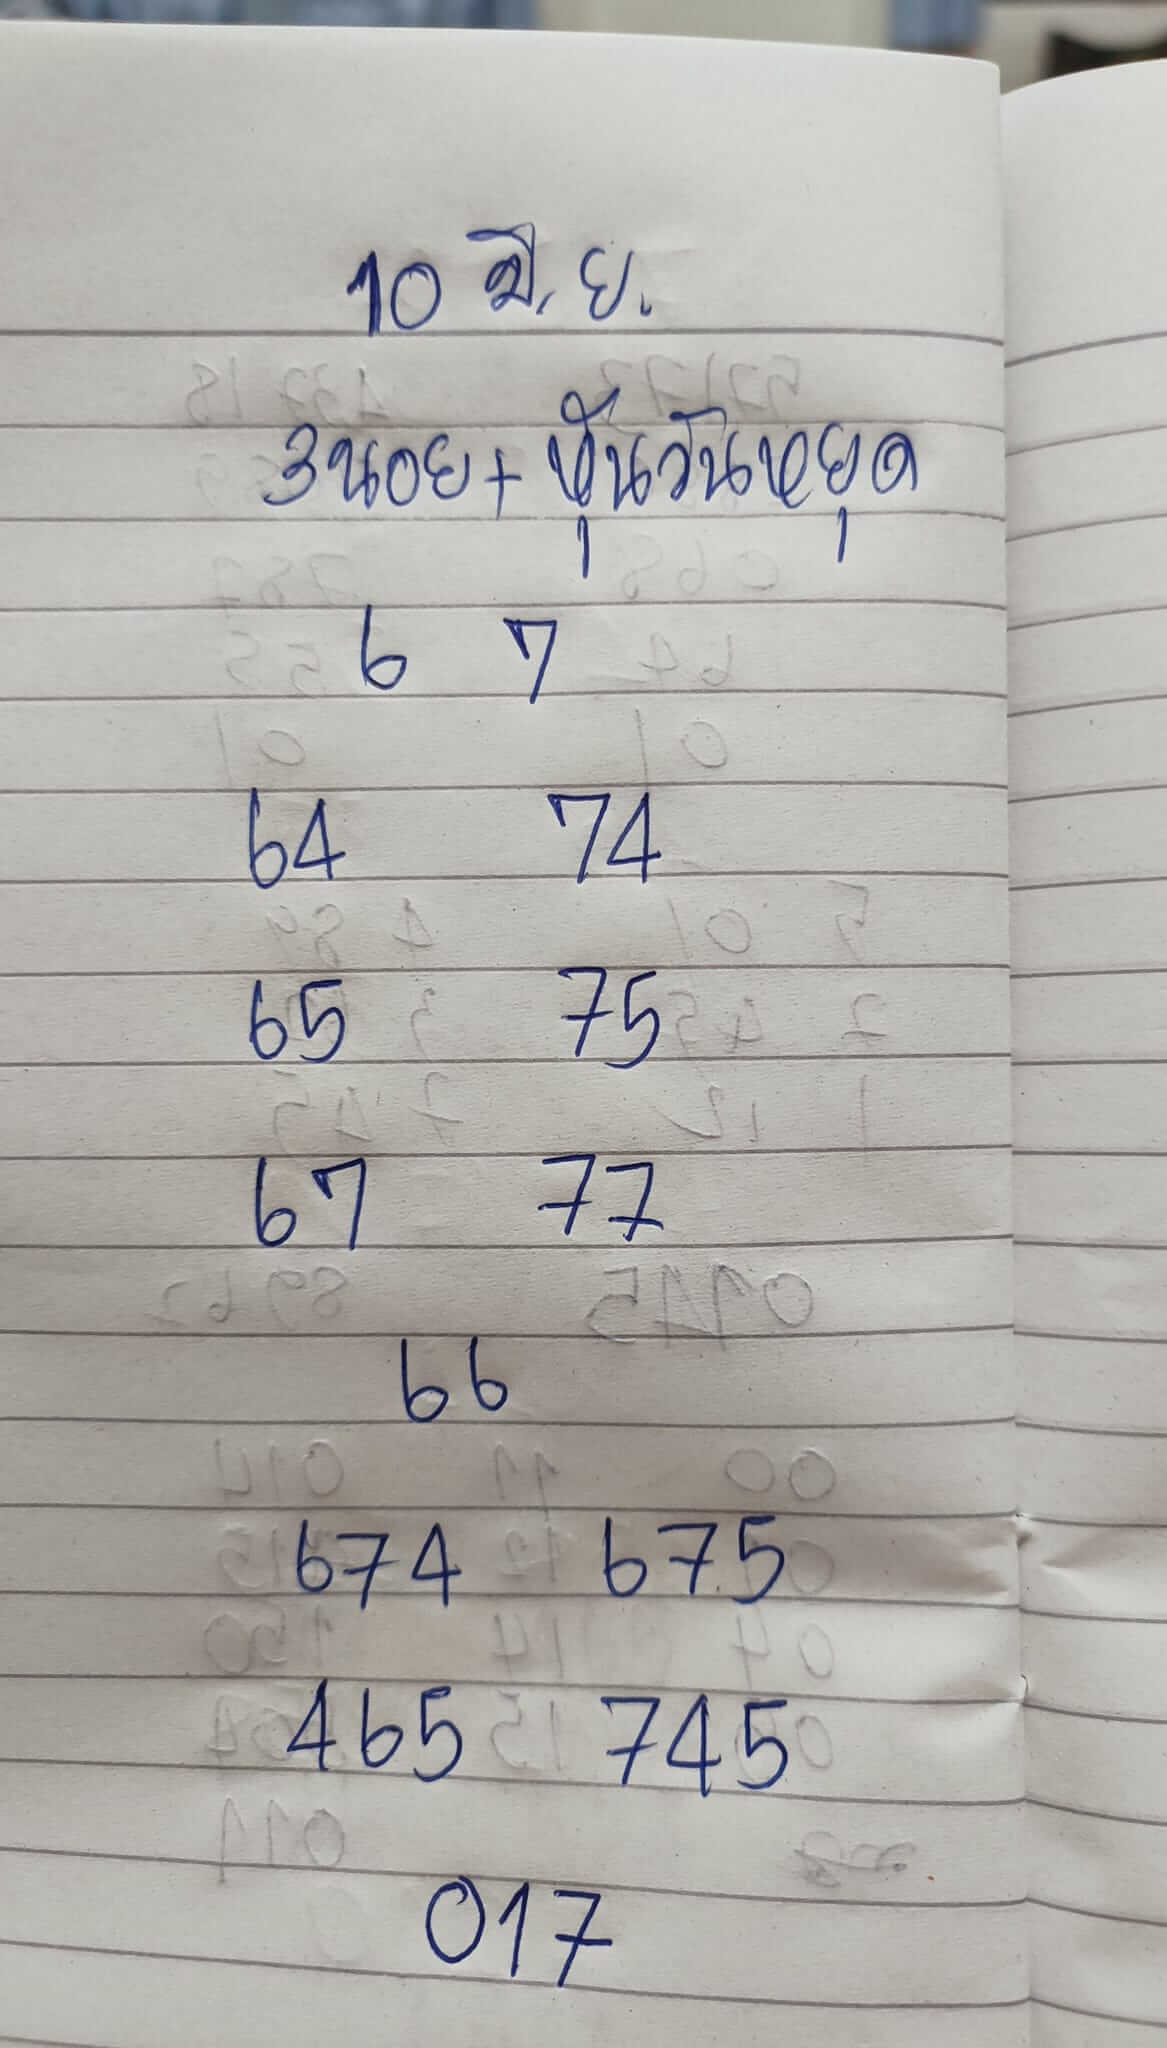 10 มิ.ย.
3นอย+ หุ้นวันหยุด
6 7
64 74
65 75
67 77
66
674 675
465 745
017